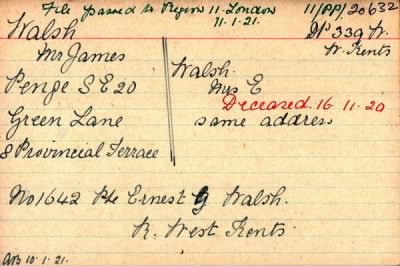 File passed to Region 11. London 11/PP/20632
11.1.21.
Walsh
Mr James
Penge S E 20
Green Lane
8 Provincial Terrace
W. Kents
Walsh.
Mrs E
Deceased. 16 11. 20
same address
No 1642 Pte Ernest G Walsh.
R. West Kents.
10.1.21.